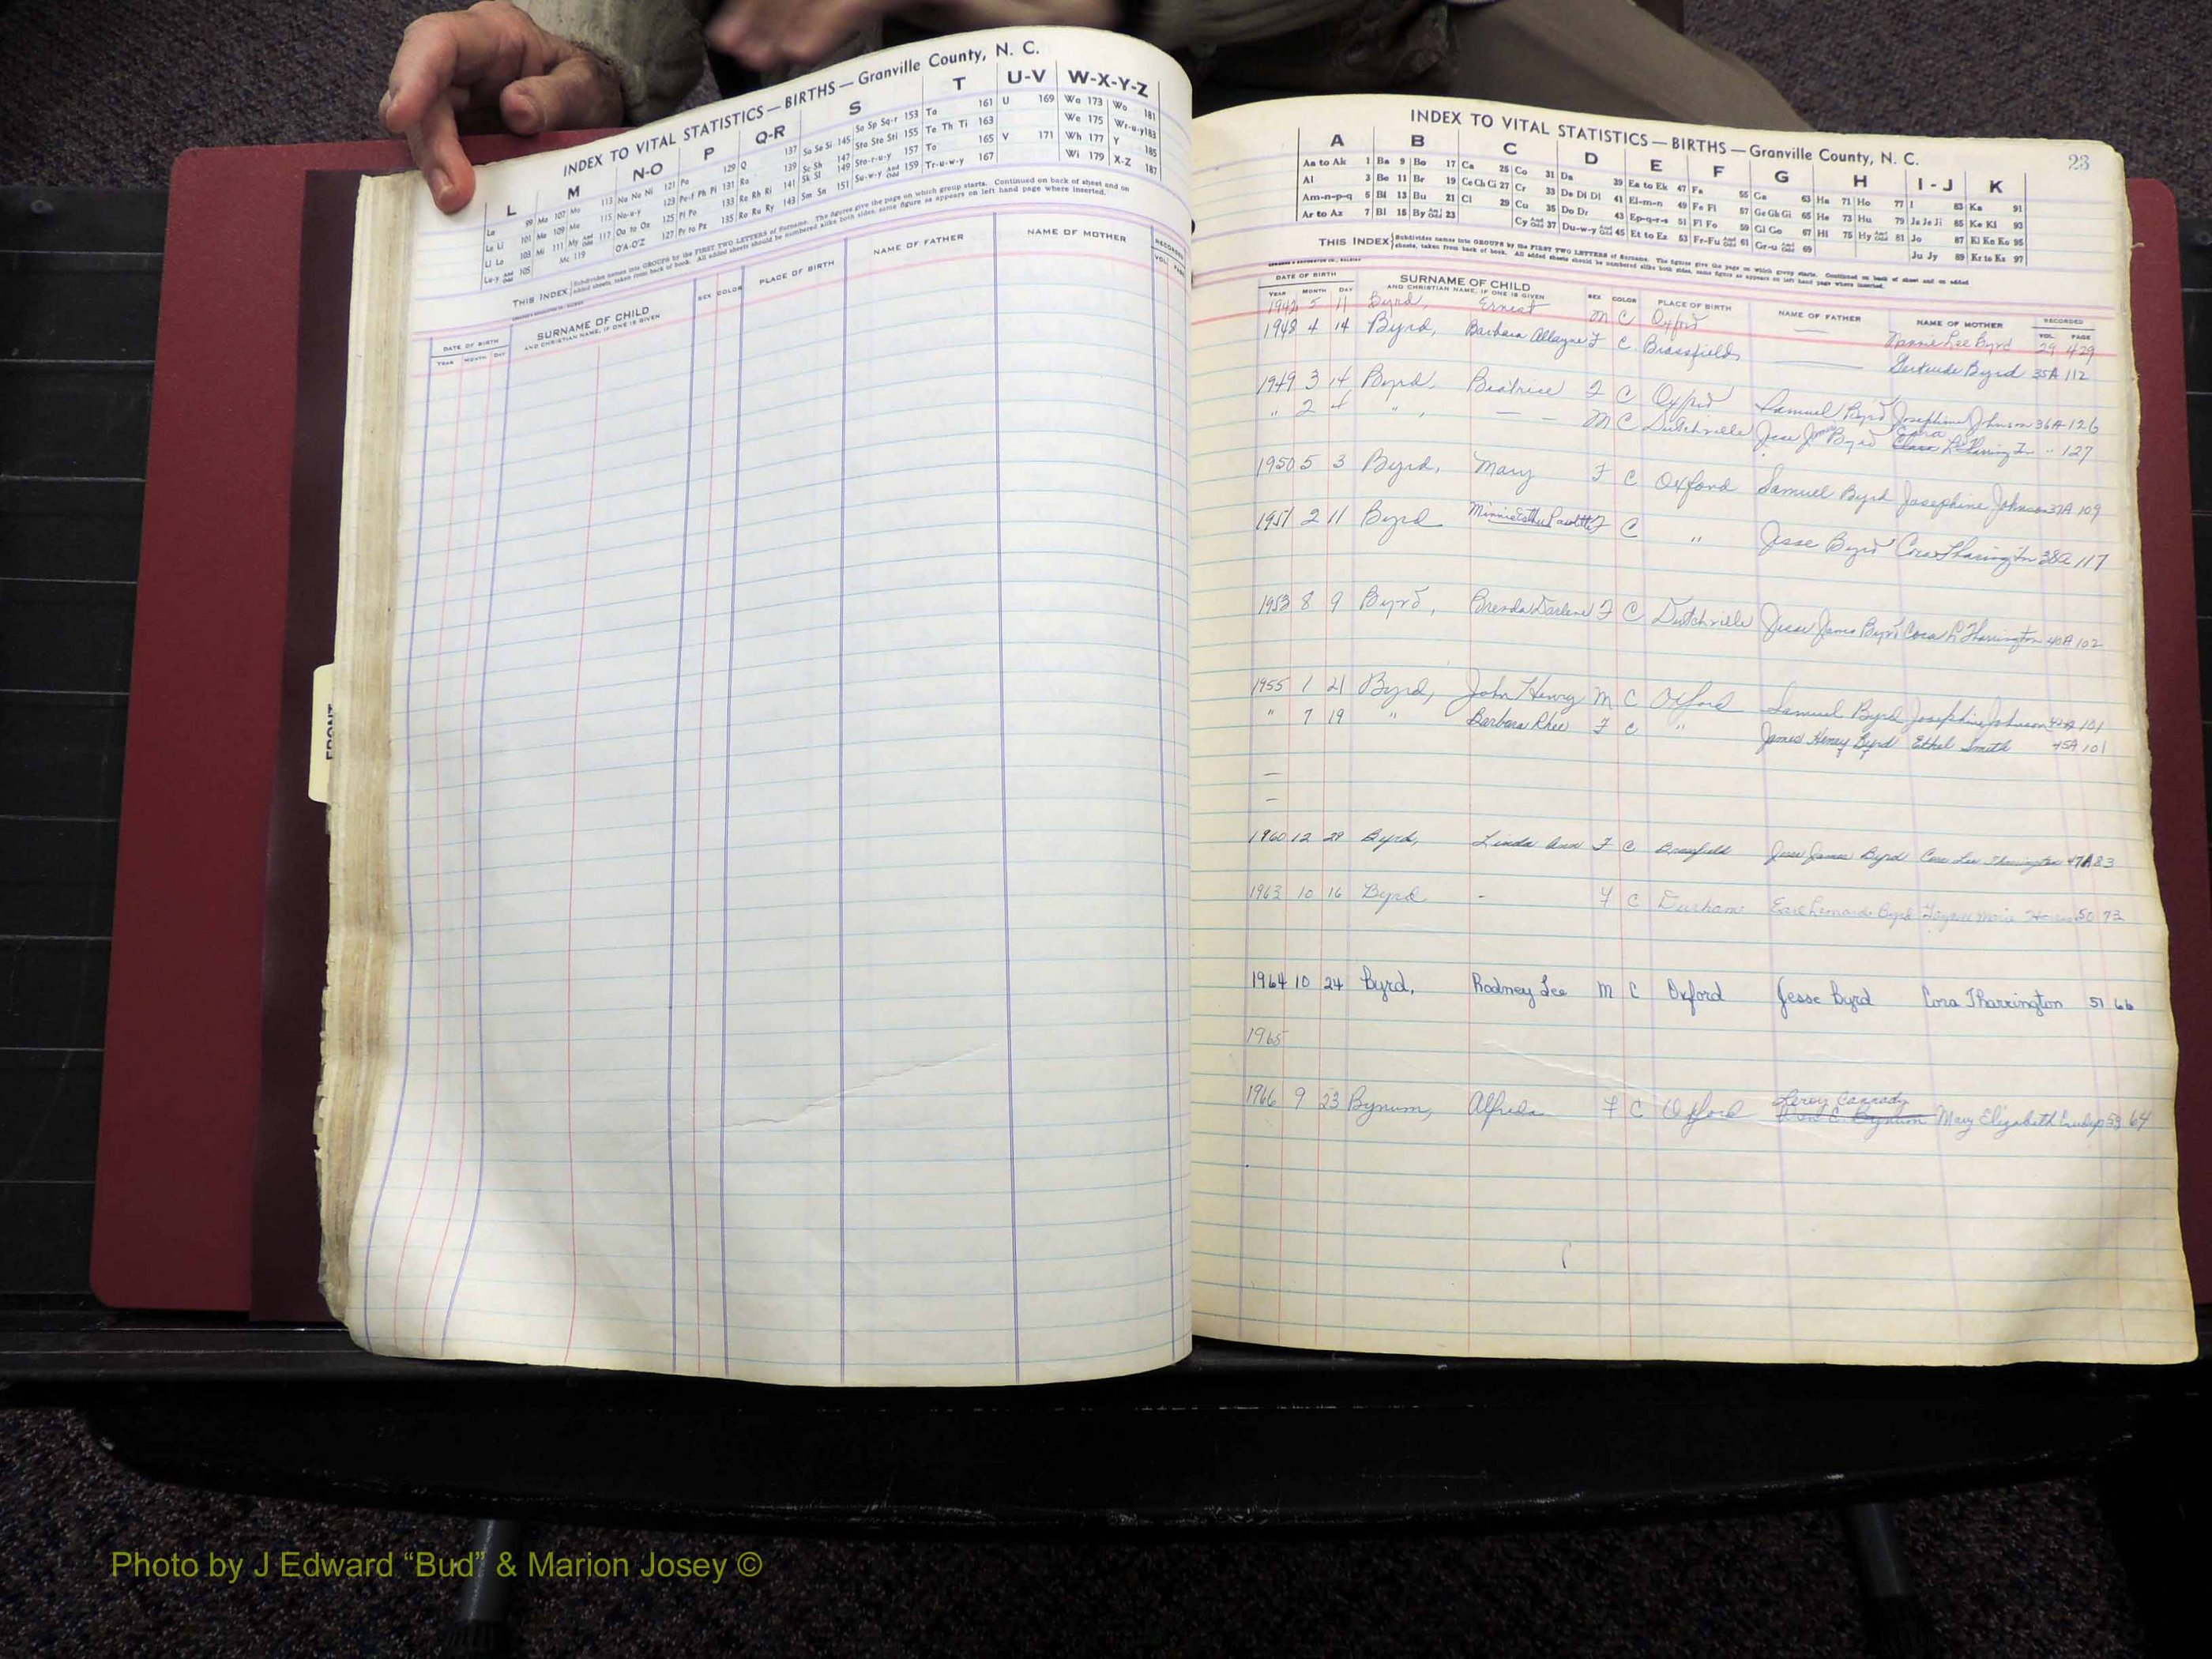 INDEX TO VITAL STATISTICS — BIRTHS — Granville County, N. C.
L M N-O P Q-R S T U-V W-X-Y-Z
La 99 Ma 107 Mo 113 Na Ne Ni 121 Pa 129 Q 137 Sa Se Si 145 So Sp Sq-r 153 Ta 161 U 169 Wa 173 Wo 181
Le Li 101 Me 109 Mu 115 No-u-y 123 Pe-f Ph Pi 131 Ra 139 Sc Sh 147 Sta Ste Sti 155 Te Th Ti 163 We 175 Wr-u-y 183
Ll Lo 103 Mi 111 My And Odd 117 Oa to Oz 125 Pl Po 133 Re Rh Ri 141 Sk Sl 149 Sto-r-u-y 157 To 165 V 171 Wh 177 Y 185
Lu-y And Odd 105 Mc 119 O'A-O'Z 127 Pr to Pz 135 Ro Ru Ry 143 Sm Sn 151 Su-w-y And Odd 159 Tr-u-w-y 167 Wi 179 X-Z 187
THIS INDEX Subdivides names into GROUPS by the FIRST TWO LETTERS of Surname. The figures give the page on which group starts. Continued on back of sheet and on
added sheets, taken from back of book. All added sheets should be numbered alike both sides, same figure as appears on left hand page where inserted.
DATE OF BIRTH SURNAME OF CHILD SEX COLOR PLACE OF BIRTH NAME OF FATHER NAME OF MOTHER RECORDED
YEAR MONTH DAY AND CHRISTIAN NAME, IF ONE IS GIVEN VOL. PAGE
FRONT
INDEX TO VITAL STATISTICS — BIRTHS — Granville County, N. C.
23
A B C D E F G H I - J K
Aa to Ak 1 Ba 9 Bo 17 Ca 25 Co 31 Da 39 Ea to Ek 47 Fa 55 Ga 63 Ha 71 Ho 77 I 83 Ka 91
Al 3 Be 11 Br 19 Ce Ch Ci 27 Cr 33 De Di Dl 41 El-m-n 49 Fe Fi 57 Ge Gh Gi 65 He 73 Hu 79 Ja Je Ji 85 Ke Kl 93
Am-n-p-q 5 Bi 13 Bu 21 Cl 29 Cu 35 Do Dr 43 Ep-q-r-s 51 Fl Fo 59 Gl Go 67 Hi 75 Hy And Odd 81 Jo 87 Ki Kn Ko 95
Ar to Az 7 Bl 15 By And Odd 23 Cy And Odd 37 Du-w-y And Odd 45 Et to Ez 53 Fr-Fu And Odd 61 Gr-u And Odd 69 Ju Jy 89 Kr to Kz 97
THIS INDEX Subdivides names into GROUPS by the FIRST TWO LETTERS of Surname. The figures give the page on which group starts. Continued on back of sheet and on added
sheets, taken from back of book. All added sheets should be numbered alike both sides, same figure as appears on left hand page where inserted.
DATE OF BIRTH SURNAME OF CHILD SEX COLOR PLACE OF BIRTH NAME OF FATHER NAME OF MOTHER RECORDED
YEAR MONTH DAY AND CHRISTIAN NAME, IF ONE IS GIVEN VOL. PAGE
1942 5 11 Byrd, Ernest M C Oxford — Nannie Lee Byrd 29 429
1948 4 14 Byrd, Barbara F C Brassfields — Gertrude Byrd 35A 112
1949 3 14 Byrd, Beatrice F C Oxford Samuel Byrd Josephine Johnson 36A 126
" 2 4 " , — — M C Dutchville Jesse James Byrd Cora Clara L. Tharrington " 127
1950 5 3 Byrd, Mary F C Oxford Samuel Byrd Josephine Johnson 37A 109
1951 2 11 Byrd Minnie F C " Jesse Byrd Cora Tharrington 38A 117
1953 8 9 Byrd, Brenda Darlene F C Dutchville Jesse James Byrd Cora L Tharrington 40A 102
1955 1 21 Byrd, John Henry M C Oxford Samuel Byrd Josephine Johnson 42A 101
" 7 19 " Barbara Rhee F C " James Henry Byrd Ethel Smith 45A 101
—
—
1960 12 29 Byrd, Linda Ann F C Brassfield Jesse James Byrd Cora Lee Tharrington 47A 83
1963 10 16 Byrd - F C Durham Earl Leonard Byrd Marie 50 73
1964 10 24 Byrd, Rodney Lee M C Oxford Jesse Byrd Cora Tharrington 51 66
1965
1966 9 23 Bynum, Alfreda F C Oxford Leroy Cannady
C. Bynum Mary Elizabeth 53 64
Photo by J Edward “Bud” & Marion Josey ©